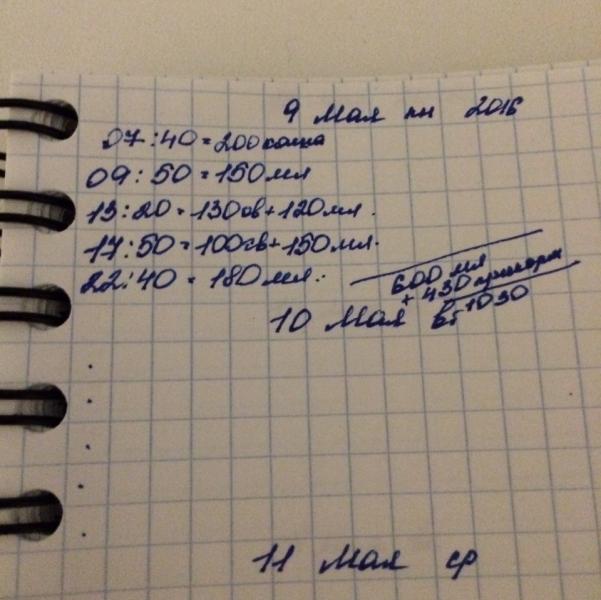 9 Мая пн 2016
07:40 = 200 каша
09:50 = 150 мл
13:20 = 130 ов + 120 мл.
17:50 = 100 ов + 150 мл.
22:40 = 180 мл.
600 мл
+ 430 прикорм
1030
10 Мая вт
11 Мая ср